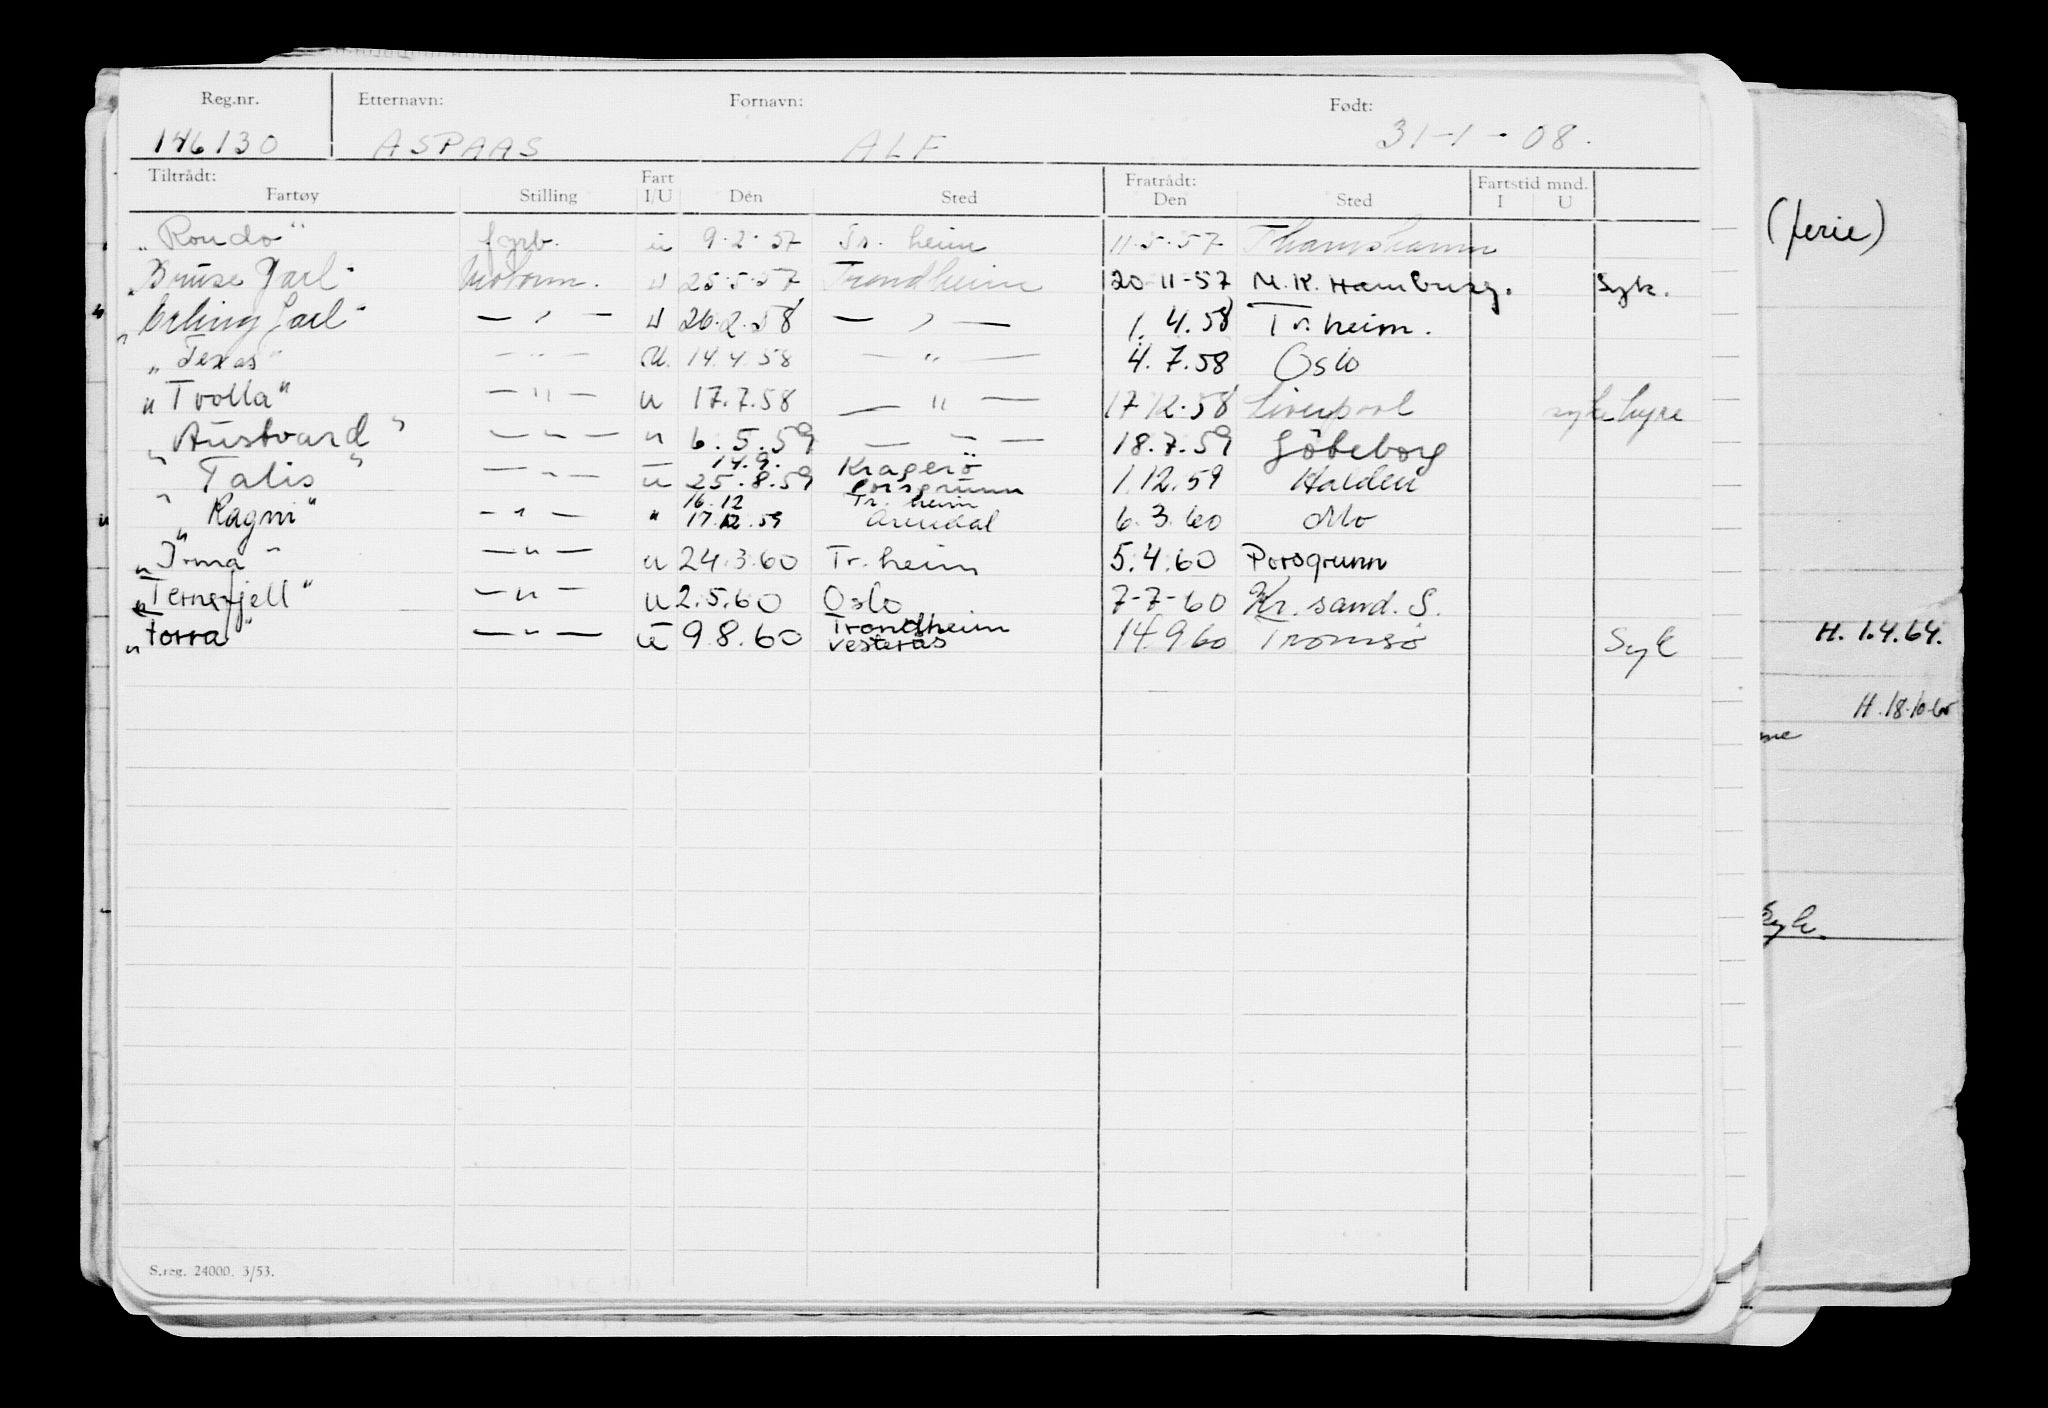 Reg.nr. Etternavn: Fornavn: Født:
146130 ASPAAS ALF 31-1-08.
Tiltrådt: Fart Fratrådt: Fartstid mnd.
Fartøy Stilling I/U Den Sted Den Sted I U
"Rondo" fyrb. u 9.2.57 Tr. heim 11.5.57 Thamshamn
"Bruse Jarl" Motorm. u 25.5.57 Trondheim 20-11-57 M.K. Hamburg. Syk.
"Erling Jarl" — " — u 26.2.58 — " — 1.4.58 Tr. heim.
"Texas" — " — U. 14.4.58 — " — 4.7.58 Oslo
"Trolla" — " — u 17.7.58 — " — 17.12.58 Liverpool sykehyre
"Austvard" — " — u 6.5.59 — " — 18.7.59 Göteborg
14.9. Kragerö
"Talis" — " — u 25.8.59 Porsgrunn 1.12.59 Halden
16.12 Tr. heim
"Ragni" — " — " 17.12.59 Arendal 6.3.60 Oslo
"Irma" — " — u 24.3.60 Tr. heim 5.4.60 Porsgrunn
"Ternefjell" — " — u 2.5.60 Oslo 7-7-60 Kr. sand. S.
Trondheim
"Torra" — " — u 9.8.60 Vesterås 14.9.60 Tromsø Syk
S.reg. 24000. 3/53.
(ferie)
H. 1.4.64.
H. 18.10.65
Syk.